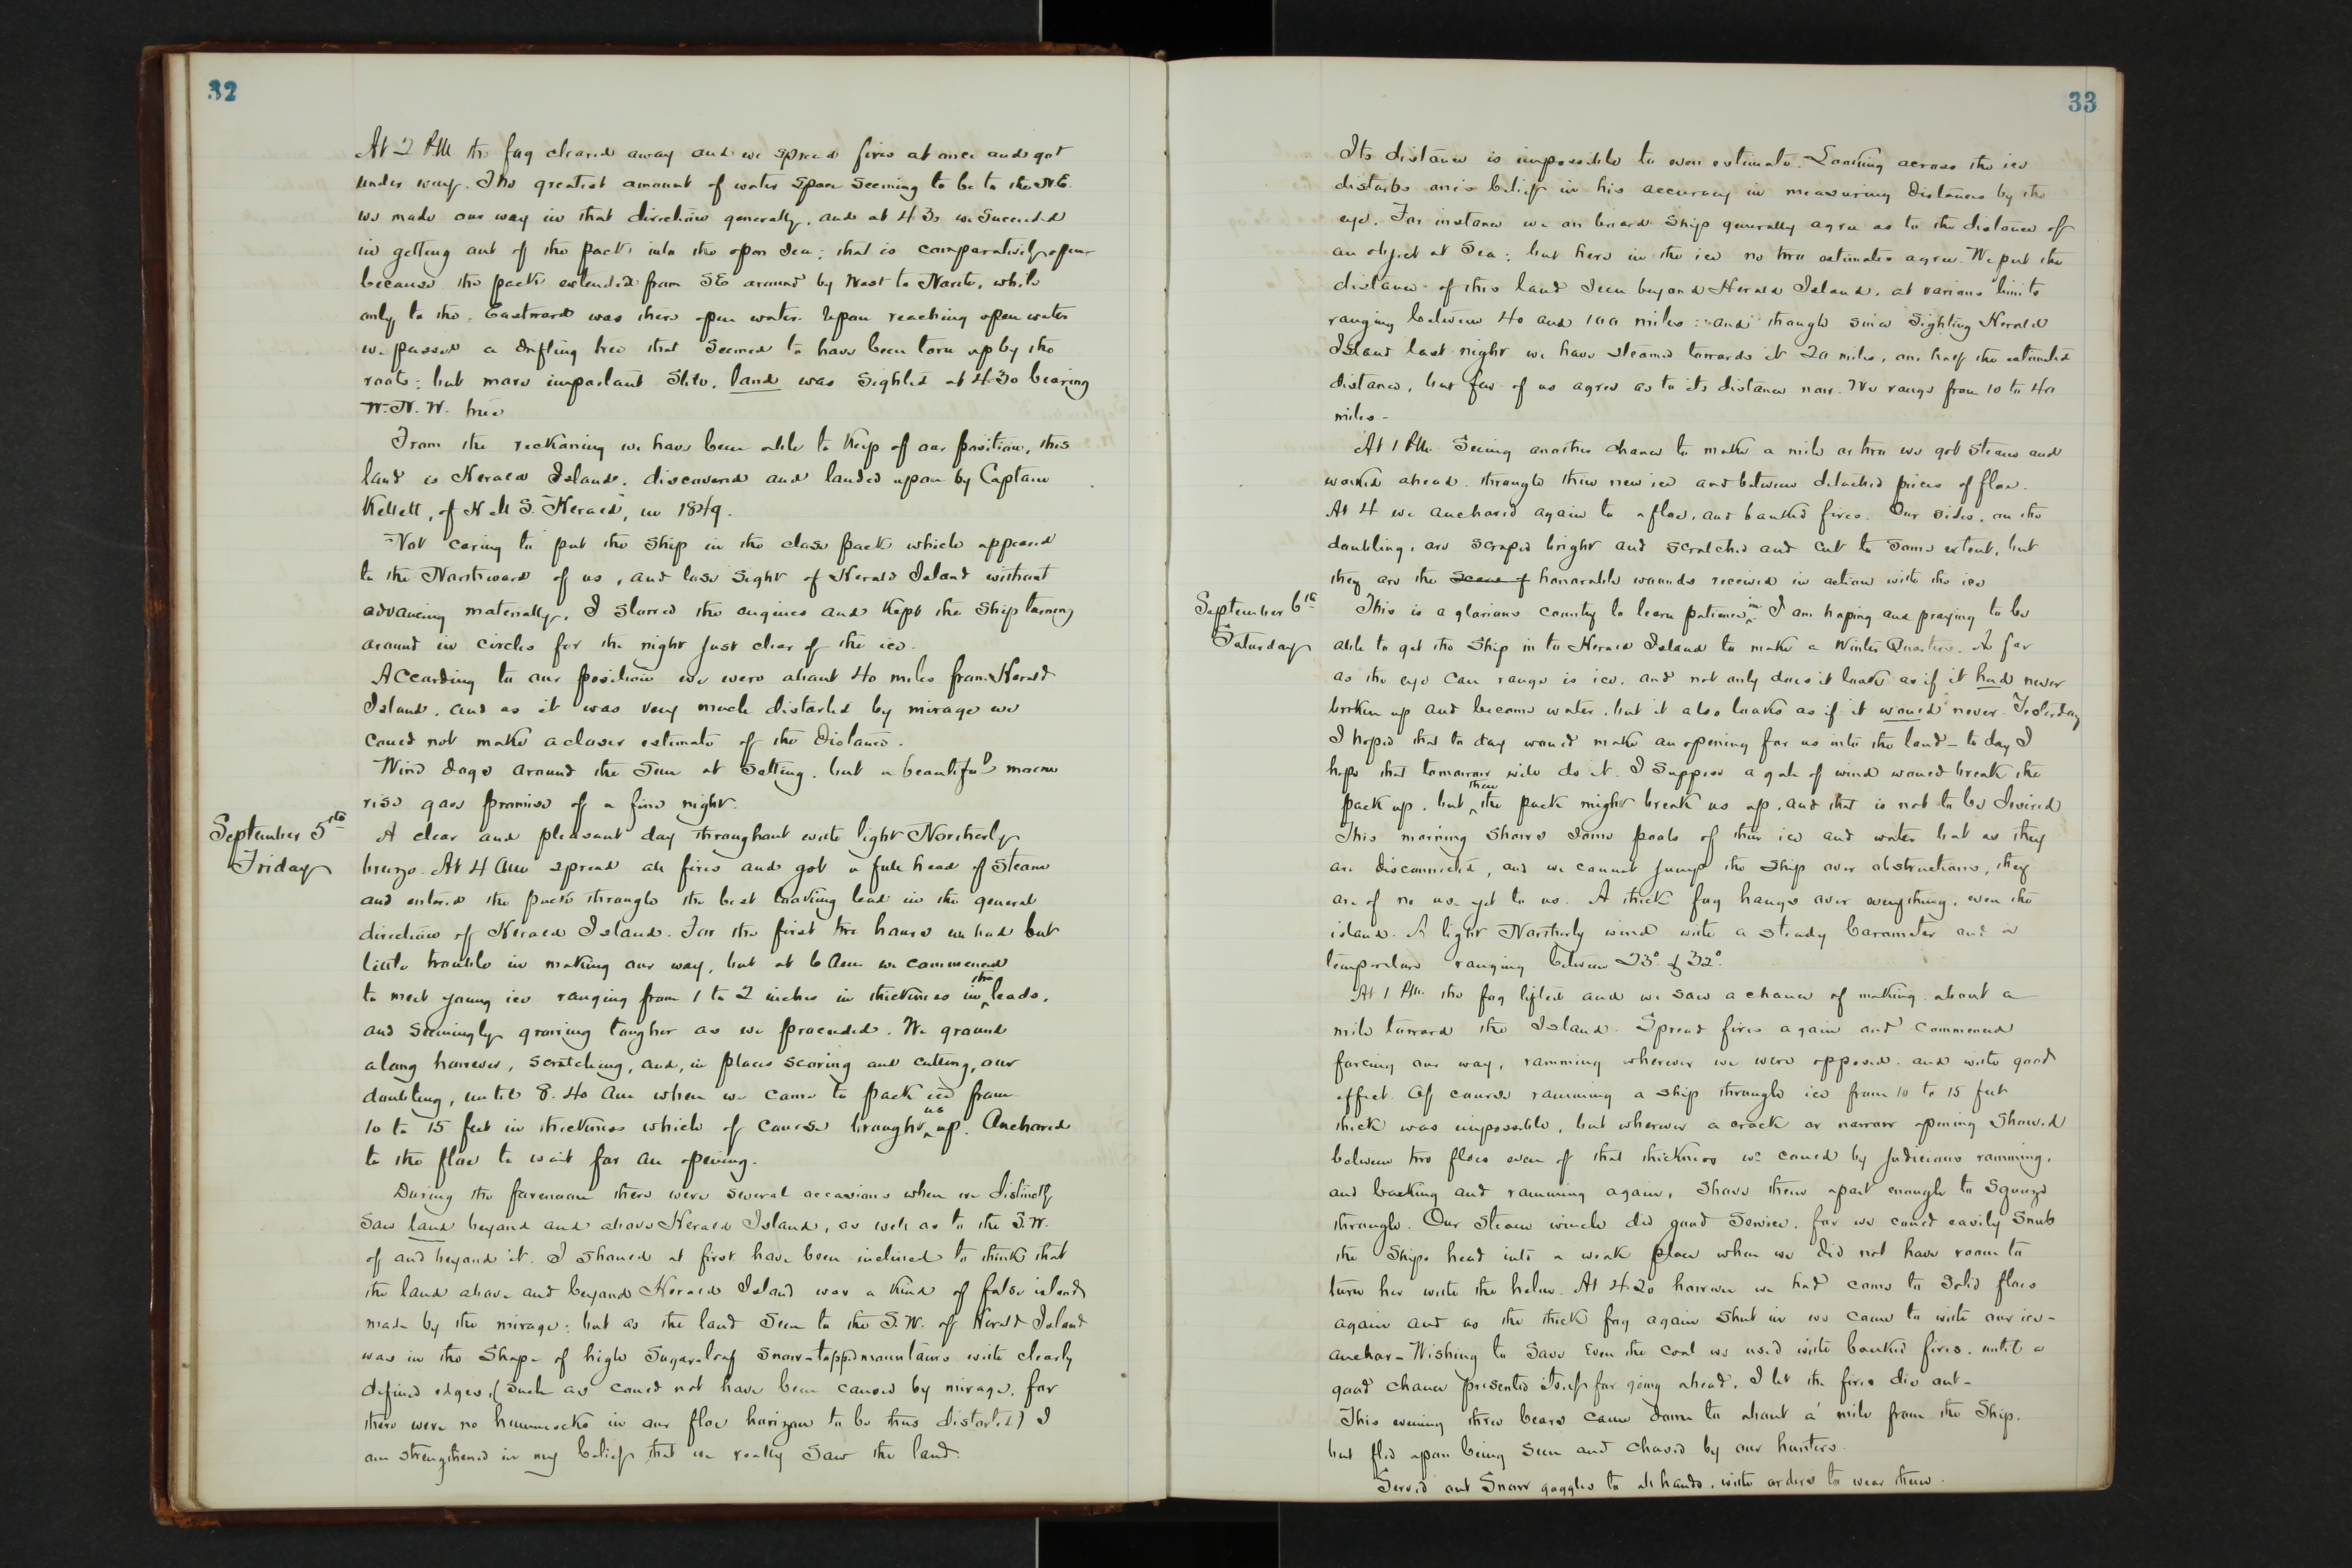 32
At 2 PM the fog cleared away and we spread fires at once and got
under way. The greatest amount of water space seeming to be to the N.E.
we made our way in that direction generally, and at 4 30 we succeeded
in getting out of the pack into the open sea; that is comparatively open
because the pack extended from SE around by West to North, while
only to the Eastward was there open water. Upon reaching open water
we passed a drifting tree that seemed to have been torn up by the
roots; but more important still, land was sighted at 4.30 bearing
W.N.W. true
From the reckoning we have been able to keep of our position, this
land is Herald Island, discovered and landed upon by Captain
Kellett, of H M S. "Herald", in 1849.
Not caring to put the ship in the close pack which appeared
to the Northward of us, and lose sight of Herald Island without
advancing materially, I slowed the engines and kept the ship turning
around in circles for the night just clear of the ice.
According to our position we were about 40 miles from Herald
Island, and as it was very much distorted by mirage we
could not make a closer estimate of the distance.
Wind dogs around the Sun at setting, but a beautiful moon
rise gave promise of a fine night.
September 5th
Friday
A clear and pleasant day throughout with light Northerly
breeze. At 4 AM spread all fires and got a full head of steam
and entered the pack through the best looking lead in the general
direction of Herald Island. For the first two hours we had but
little trouble in making our way, but at 6 am we commenced
to meet young ice ranging from 1 to 2 inches in thickness in the leads,
and seemingly growing tougher as we proceeded. We ground
along however, scratching, and, in places scoring and cutting, our
doubling, until 8.40 am when we came to pack ice from
10 to 15 feet in thickness which of course brought us up. Anchored
to the floe to wait for an opening.
During the forenoon there were several occasions when we distinctly
saw land beyond and above Herald Island, as well as to the S.W.
of and beyond it. I should at first have been inclined to think that
the land above and beyond Herald Island was a kind of false island
made by the mirage; but as the land seen to the S.W. of Herald Island
was in the shape of high Sugarloaf snow-topped mountains with clearly
defined edges, (such as could not have been caused by mirage, for
there were no hummocks in our floe horizon to be thus distorted) I
am strengthened in my belief that we really saw the land.
33
Its distance is impossible to even estimate. Looking across the ice
disturbs one's belief in his accuracy in measuring distances by the
eye. For instance we on board ship generally agree as to the distance of
an object at Sea; but here in the ice no two estimates agree. We put the
distance of this land seen beyond Herald Island, at various limits
ranging between 40 and 100 miles; and though since sighting Herald
Island last night we have steamed towards it 20 miles, one half the estimated
distance, but few of us agree as to its distance now. We range from 10 to 40
miles -
At 1 PM. Seeing another chance to make a mile or two we got steam and
worked ahead through thin new ice and between detached pieces of floe.
At 4 we anchored again to a floe, and banked fires. Our sides, on the
doubling, are scraped bright and scratched and cut to some extent, but
they are the honorable wounds received in action with the ice
September 6th
Saturday
This is a glorious country to learn patience in. I am hoping and praying to be
able to get the ship in to Herald Island to make a Winter Quarters. As far
as the eye can range is ice, and not only does it look as if it had never
broken up and become water, but it also looks as if it would never. Yesterday
I hoped that to day would make an opening for us into the land - to day I
hope that tomorrow will do it. I suppose a gale of wind would break the
pack up, but then the pack might break us up, and that is not to be desired
This morning shows some pools of thin ice and water but as they
are disconnected, and we cannot jump the ship over obstructions, they
are of no use yet to us. A thick fog hangs over everything, even the
island. A light Northerly wind with a steady barometer and a
temperature ranging between 23° & 32°.
At 1 PM. the fog lifted and we saw a chance of making about a
mile toward the Island. Spread fires again and commenced
forcing our way, ramming wherever we were opposed and with good
effect. Of course ramming a ship through ice from 10 to 15 feet
thick was impossible, but wherever a crack or narrow opening showed
between two floes even of that thickness we could by judicious ramming,
and backing and ramming again, shove them apart enough to squeeze
through. Our steam winch did good service, for we could easily snub
the ships head into a weak place when we did not have room to
turn her with the helm. At 4.20 however we had come to solid floes
again and as the thick fog again shut in we came to with our ice-
anchor - Wishing to save even the coal we used with banked fires, until a
good chance presented itself for going ahead, I let the fires die out -
This evening three bears came down to about a mile from the Ship.
but fled upon being seen and chased by our hunters.
Served out snow goggles to all hands, with orders to wear them.